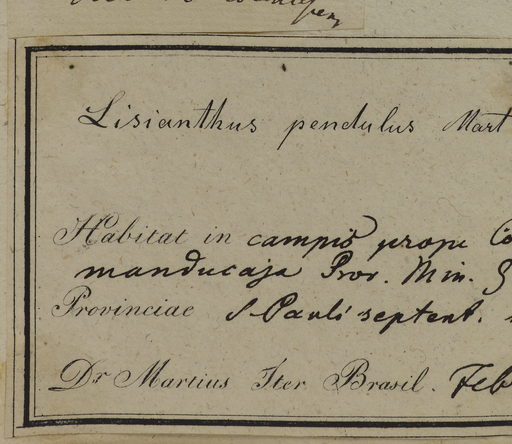 Lisianthus pendulus Mart
Habitat in campis prope
manducaja Prov. Min.
Provinciae S Pauli septent.
Dr Martius Iter Brasil. Feb